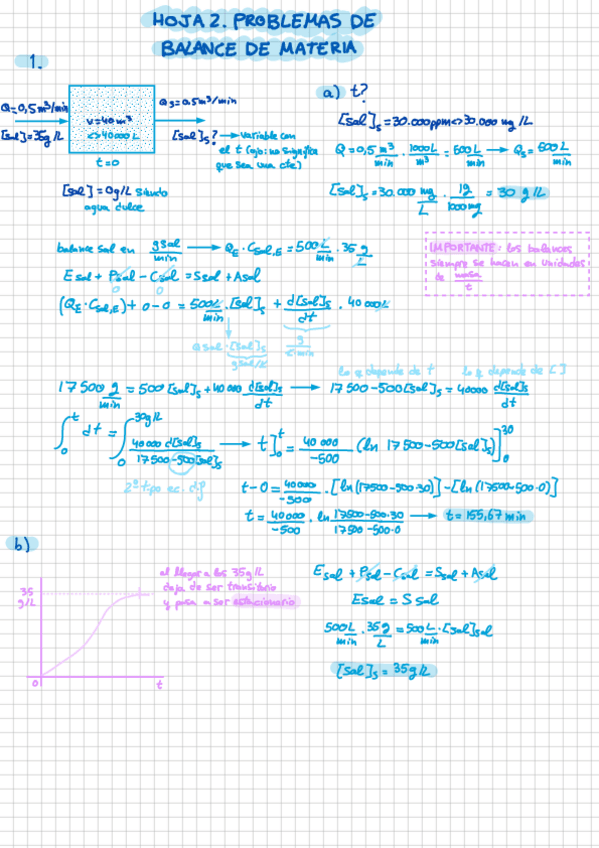 HOJA 2. PROBLEMAS DE
BALANCE DE MATERIA
1.
Q=0,5m³/min
[sal]=35g/L
V=40m³
<>40000L
t=0
Qs=0,5m³/min
[sal]s? → variable con
el t (ojo: no significa
que sea una cte)
[sal]=0g/L siendo
agua dulce
a) t?
[sal]s=30.000ppm<>30.000 mg/L
Q=0,5 m³/min · 1000L/m³ = 500 L/min → Qs=500 L/min
[sal]s=30.000 mg/L · 1g/1000mg = 30 g/L
IMPORTANTE: los balances
siempre se hacen en unidades
de masa/t
balance sal en g sal/min → QE · Csal,E = 500 L/min · 35 g/L
Esal + Psal - Csal = Ssal + Asal
0 0
(QE · Csal,E) + 0 - 0 = 500 L/min · [sal]s + d[sal]s/dt · 40 000 L
Qsal · [sal]s
g sal/L
g/L·min
lo q depende de t lo q depende de [ ]
17 500 g/min = 500 [sal]s + 40 000 d[sal]s/dt → 17 500 - 500[sal]s = 40000 d[sal]s/dt
∫₀ᵗ dt = ∫₀^30g/L 40 000 d[sal]s/17 500 - 500[sal]s → t]₀ᵗ = 40 000/-500 (ln 17 500 - 500[sal]s)]₀³⁰
2º tipo ec. dif
t-0 = 40 000/-500 · [ln(17500-500·30)] - [ln(17500-500·0)]
t = 40 000/-500 · ln 17500-500·30/17500-500·0 → t=155,67 min
b)
35
g/L
0
t
al llegar a los 35g/L
deja de ser transitorio
y pasa a ser estacionario
Esal + Psal - Csal = Ssal + Asal
Esal = Ssal
500 L/min · 35 g/L = 500 L/min · [sal]sal
[sal]s = 35g/L